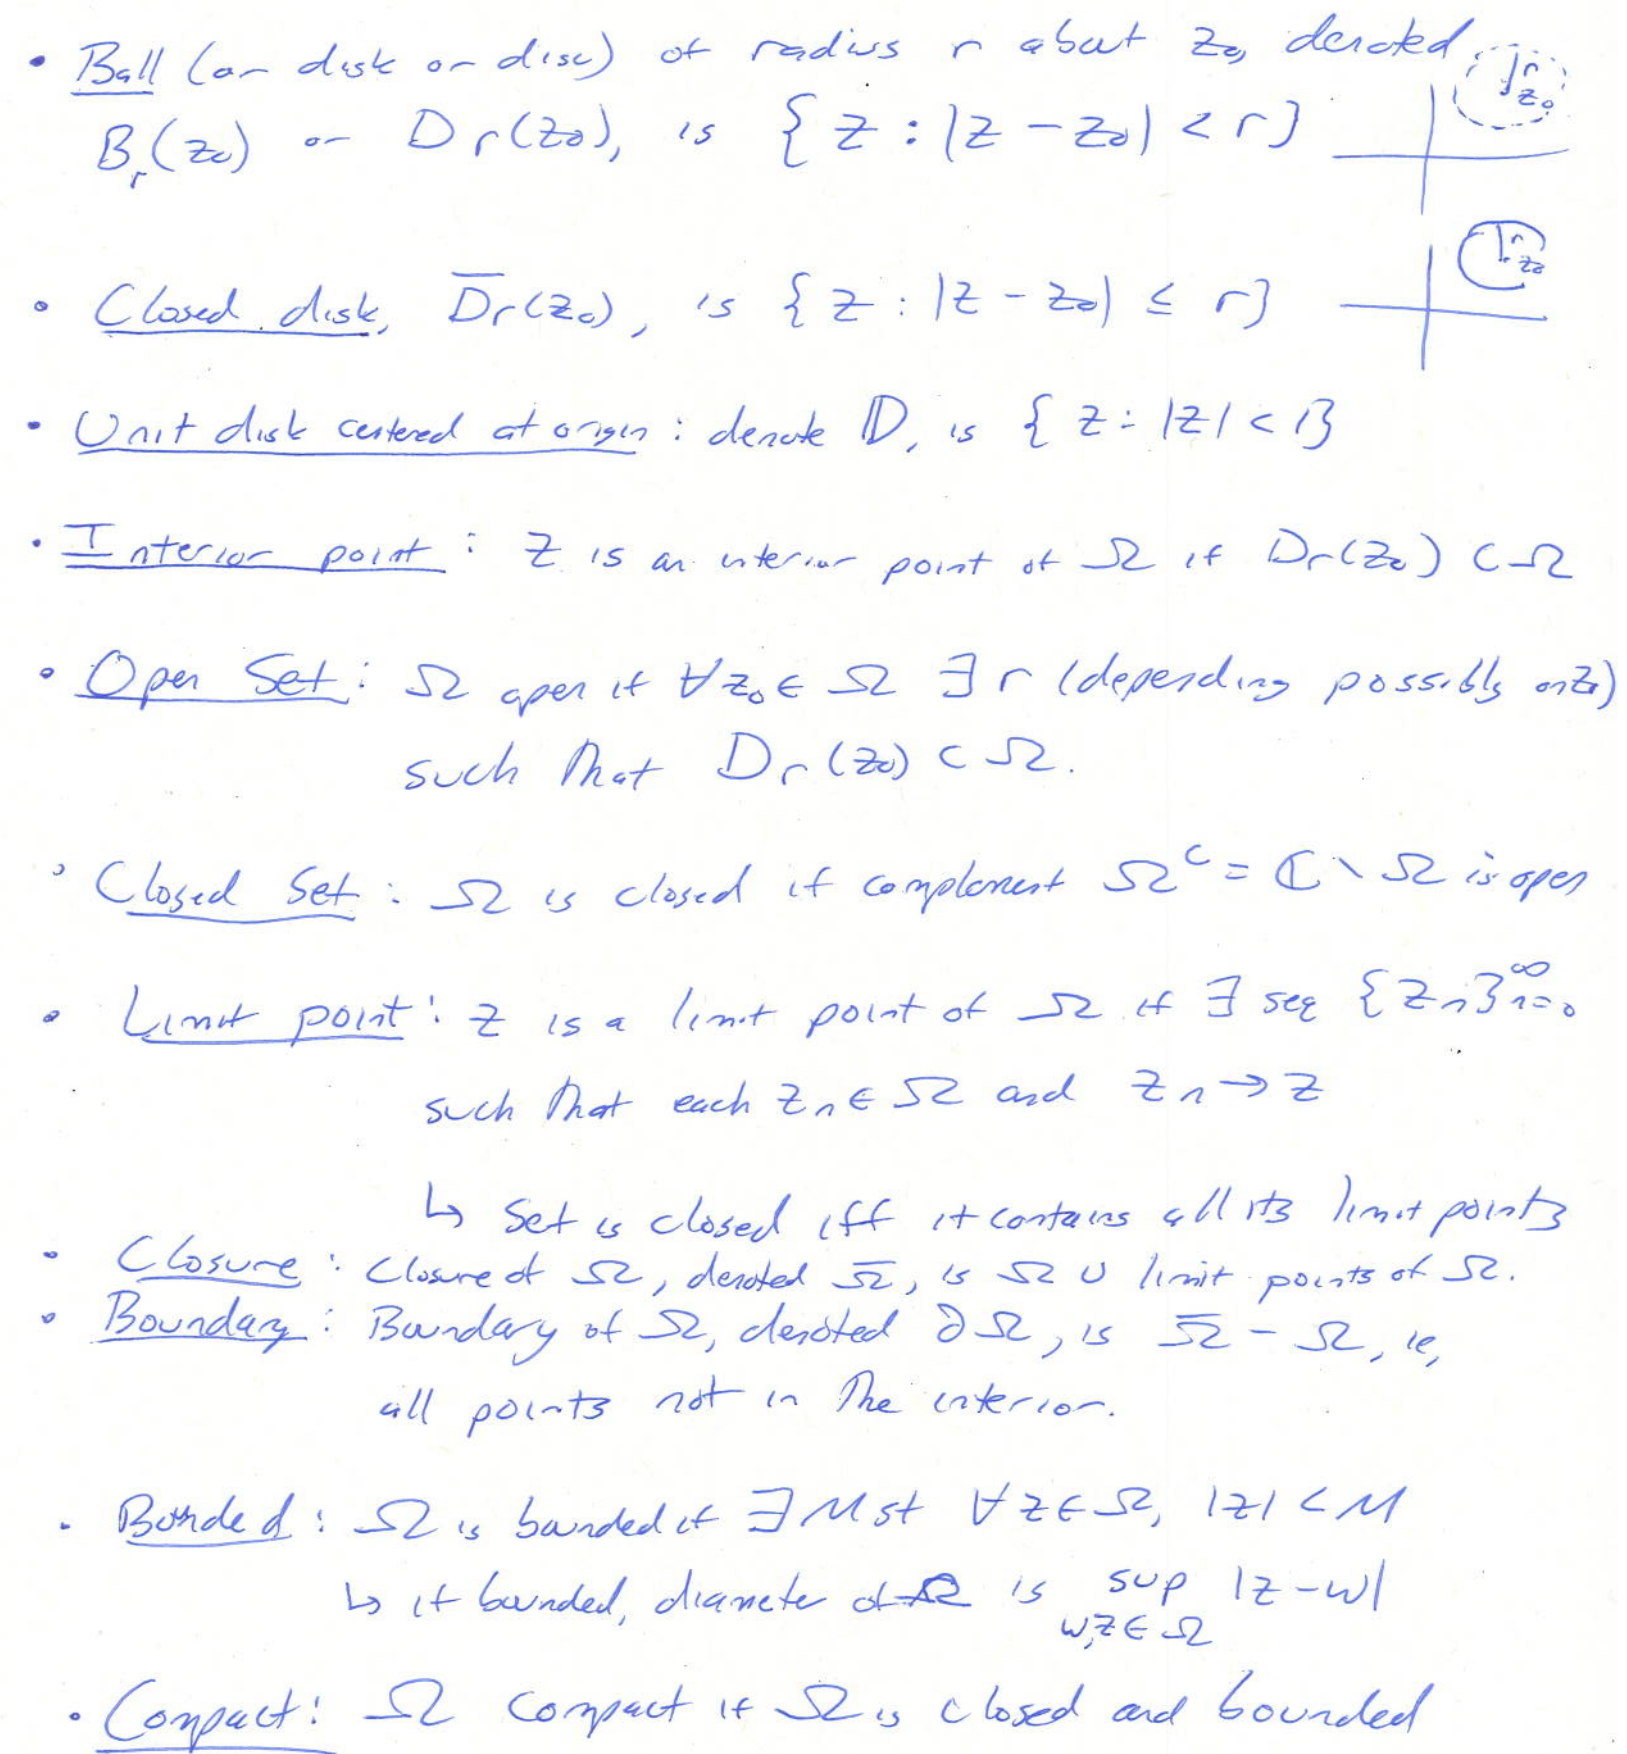 • Ball (or disk or disc) of radius r about z₀, denoted
Bᵣ(z₀) or Dᵣ(z₀), is { z : |z - z₀| < r }
r
z₀
r
z₀
• Closed disk, D̅ᵣ(z₀), is { z : |z - z₀| ≤ r }
• Unit disk centered at origin : denote 𝔻, is { z : |z| < 1 }
• Interior point : z is an interior point of Ω if Dᵣ(z₀) ⊂ Ω
• Open Set : Ω open if ∀ z₀ ∈ Ω ∃ r (depending possibly on z₀)
such that Dᵣ(z₀) ⊂ Ω.
• Closed Set : Ω is closed if complement Ωᶜ = ℂ \ Ω is open
• Limit point : z is a limit point of Ω if ∃ seq {zₙ}ₙ₌₀^∞
such that each zₙ ∈ Ω and zₙ → z
↳ Set is closed iff it contains all its limit points
• Closure : Closure of Ω, denoted Ω̅, is Ω ∪ limit points of Ω.
• Boundary : Boundary of Ω, denoted ∂Ω, is Ω̅ - Ω, ie,
all points not in the interior.
• Bounded : Ω is bounded if ∃ M st ∀ z ∈ Ω, |z| < M
↳ if bounded, diameter of Ω is sup |z - w|
w,z ∈ Ω
• Compact : Ω compact if Ω is closed and bounded